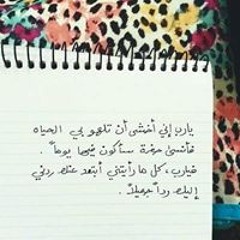 يارب إني أخشى أن تلهو بي الحياه
فأنسى حفرة سأكون فيها يوماً .
فيارب ، كل ما رأيتني أبتعد عنك ردني
إليك رداً جميلاً .